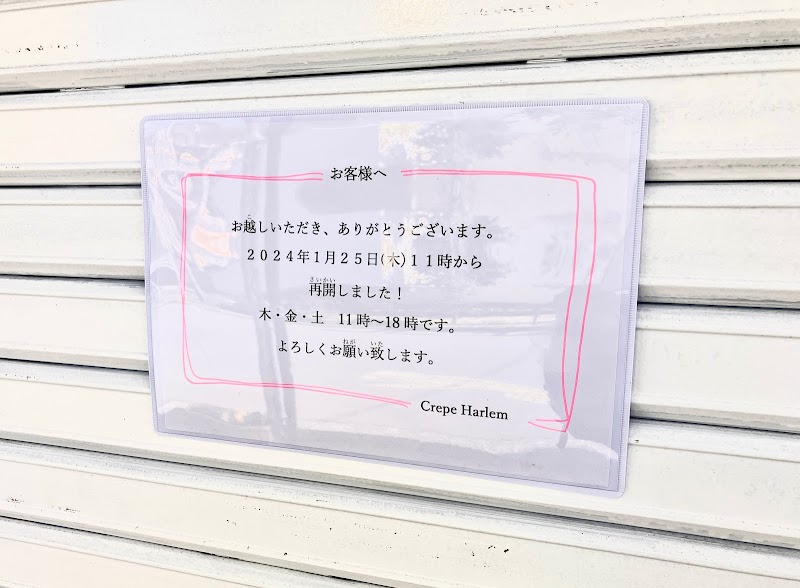 お客様へ
お越しいただき、ありがとうございます。
２０２４年１月２５日(木)１１時から
再開しました！
木・金・土　11時〜18時です。
よろしくお願い致します。
Crepe Harlem